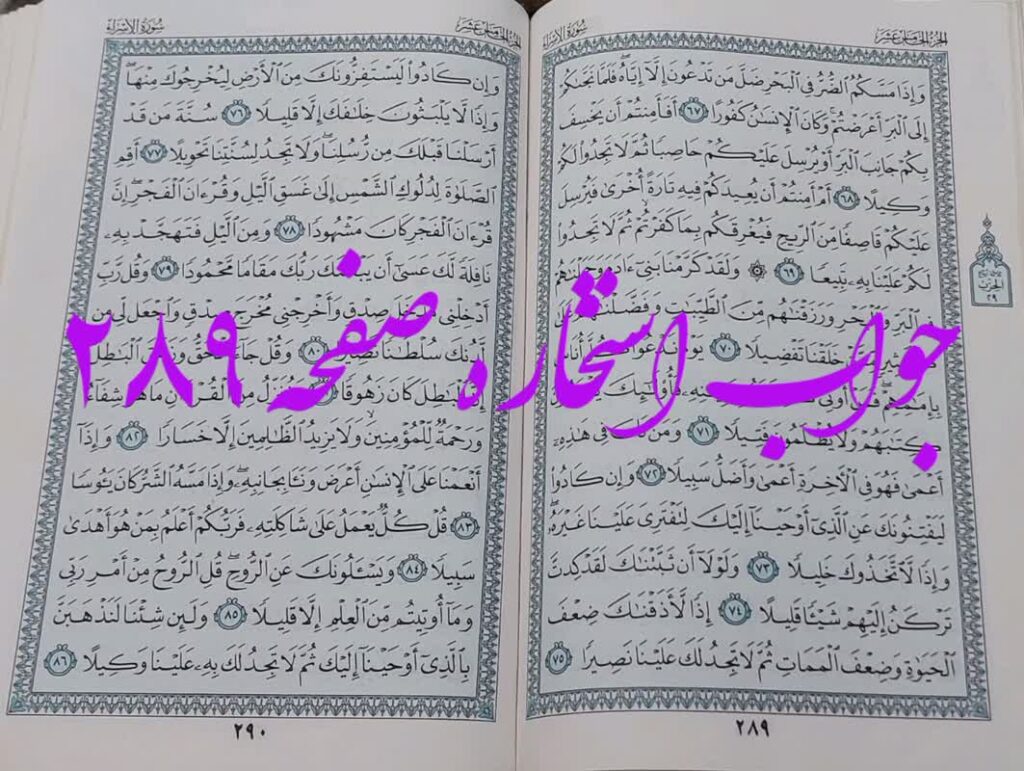 الجزء الخامس عشر
سورة الإسراء
وَإِذَا مَسَّكُمُ ٱلضُّرُّ فِى ٱلْبَحْرِ ضَلَّ مَن تَدْعُونَ إِلَّآ إِيَّاهُ فَلَمَّا نَجَّىٰكُمْ
إِلَى ٱلْبَرِّ أَعْرَضْتُمْ وَكَانَ ٱلْإِنسَٰنُ كَفُورًا ٦٧ أَفَأَمِنتُمْ أَن يَخْسِفَ
بِكُمْ جَانِبَ ٱلْبَرِّ أَوْ يُرْسِلَ عَلَيْكُمْ حَاصِبًا ثُمَّ لَا تَجِدُوا۟ لَكُمْ
وَكِيلًا ٦٨ أَمْ أَمِنتُمْ أَن يُعِيدَكُمْ فِيهِ تَارَةً أُخْرَىٰ فَيُرْسِلَ
عَلَيْكُمْ قَاصِفًا مِّنَ ٱلرِّيحِ فَيُغْرِقَكُم بِمَا كَفَرْتُمْ ثُمَّ لَا تَجِدُوا۟
لَكُمْ عَلَيْنَا بِهِۦ تَبِيعًا ٦٩ ۞ وَلَقَدْ كَرَّمْنَا بَنِىٓ ءَادَمَ وَحَمَلْنَٰهُمْ
فِى ٱلْبَرِّ وَٱلْبَحْرِ وَرَزَقْنَٰهُم مِّنَ ٱلطَّيِّبَٰتِ وَفَضَّلْنَٰهُمْ عَلَىٰ
كَثِيرٍ مِّمَّنْ خَلَقْنَا تَفْضِيلًا ٧٠ يَوْمَ نَدْعُوا۟ كُلَّ أُنَاسٍۭ
بِإِمَٰمِهِمْ فَمَنْ أُوتِىَ كِتَٰبَهُۥ بِيَمِينِهِۦ فَأُو۟لَٰٓئِكَ يَقْرَءُونَ
كِتَٰبَهُمْ وَلَا يُظْلَمُونَ فَتِيلًا ٧١ وَمَن كَانَ فِى هَٰذِهِۦٓ
أَعْمَىٰ فَهُوَ فِى ٱلْءَاخِرَةِ أَعْمَىٰ وَأَضَلُّ سَبِيلًا ٧٢ وَإِن كَادُوا۟
لَيَفْتِنُونَكَ عَنِ ٱلَّذِىٓ أَوْحَيْنَآ إِلَيْكَ لِتَفْتَرِىَ عَلَيْنَا غَيْرَهُۥ
وَإِذًا لَّٱتَّخَذُوكَ خَلِيلًا ٧٣ وَلَوْلَآ أَن ثَبَّتْنَٰكَ لَقَدْ كِدتَّ
تَرْكَنُ إِلَيْهِمْ شَيْـًٔا قَلِيلًا ٧٤ إِذًا لَّأَذَقْنَٰكَ ضِعْفَ
ٱلْحَيَوٰةِ وَضِعْفَ ٱلْمَمَاتِ ثُمَّ لَا تَجِدُ لَكَ عَلَيْنَا نَصِيرًا ٧٥
٢٨٩
الحزب
٢٩
الجزء الخامس عشر
سورة الإسراء
وَإِن كَادُوا۟ لَيَسْتَفِزُّونَكَ مِنَ ٱلْأَرْضِ لِيُخْرِجُوكَ مِنْهَا
وَإِذًا لَّا يَلْبَثُونَ خِلَٰفَكَ إِلَّا قَلِيلًا ٧٦ سُنَّةَ مَن قَدْ
أَرْسَلْنَا قَبْلَكَ مِن رُّسُلِنَا وَلَا تَجِدُ لِسُنَّتِنَا تَحْوِيلًا ٧٧ أَقِمِ
ٱلصَّلَوٰةَ لِدُلُوكِ ٱلشَّمْسِ إِلَىٰ غَسَقِ ٱلَّيْلِ وَقُرْءَانَ ٱلْفَجْرِ إِنَّ
قُرْءَانَ ٱلْفَجْرِ كَانَ مَشْهُودًا ٧٨ وَمِنَ ٱلَّيْلِ فَتَهَجَّدْ بِهِۦ
نَافِلَةً لَّكَ عَسَىٰٓ أَن يَبْعَثَكَ رَبُّكَ مَقَامًا مَّحْمُودًا ٧٩ وَقُل رَّبِّ
أَدْخِلْنِى مُدْخَلَ صِدْقٍ وَأَخْرِجْنِى مُخْرَجَ صِدْقٍ وَٱجْعَل لِّى مِن
لَّدُنكَ سُلْطَٰنًا نَّصِيرًا ٨٠ وَقُلْ جَآءَ ٱلْحَقُّ وَزَهَقَ ٱلْبَٰطِلُ
إِنَّ ٱلْبَٰطِلَ كَانَ زَهُوقًا ٨١ وَنُنَزِّلُ مِنَ ٱلْقُرْءَانِ مَا هُوَ شِفَآءٌ
وَرَحْمَةٌ لِّلْمُؤْمِنِينَ وَلَا يَزِيدُ ٱلظَّٰلِمِينَ إِلَّا خَسَارًا ٨٢ وَإِذَآ
أَنْعَمْنَا عَلَى ٱلْإِنسَٰنِ أَعْرَضَ وَنَـَٔا بِجَانِبِهِۦ وَإِذَا مَسَّهُ ٱلشَّرُّ كَانَ يَـُٔوسًا
٨٣ قُلْ كُلٌّ يَعْمَلُ عَلَىٰ شَاكِلَتِهِۦ فَرَبُّكُمْ أَعْلَمُ بِمَنْ هُوَ أَهْدَىٰ
سَبِيلًا ٨٤ وَيَسْـَٔلُونَكَ عَنِ ٱلرُّوحِ قُلِ ٱلرُّوحُ مِنْ أَمْرِ رَبِّى
وَمَآ أُوتِيتُم مِّنَ ٱلْعِلْمِ إِلَّا قَلِيلًا ٨٥ وَلَئِن شِئْنَا لَنَذْهَبَنَّ
بِٱلَّذِىٓ أَوْحَيْنَآ إِلَيْكَ ثُمَّ لَا تَجِدُ لَكَ بِهِۦ عَلَيْنَا وَكِيلًا ٨٦
٢٩٠
جواب استخاره صفحه ٢٨٩